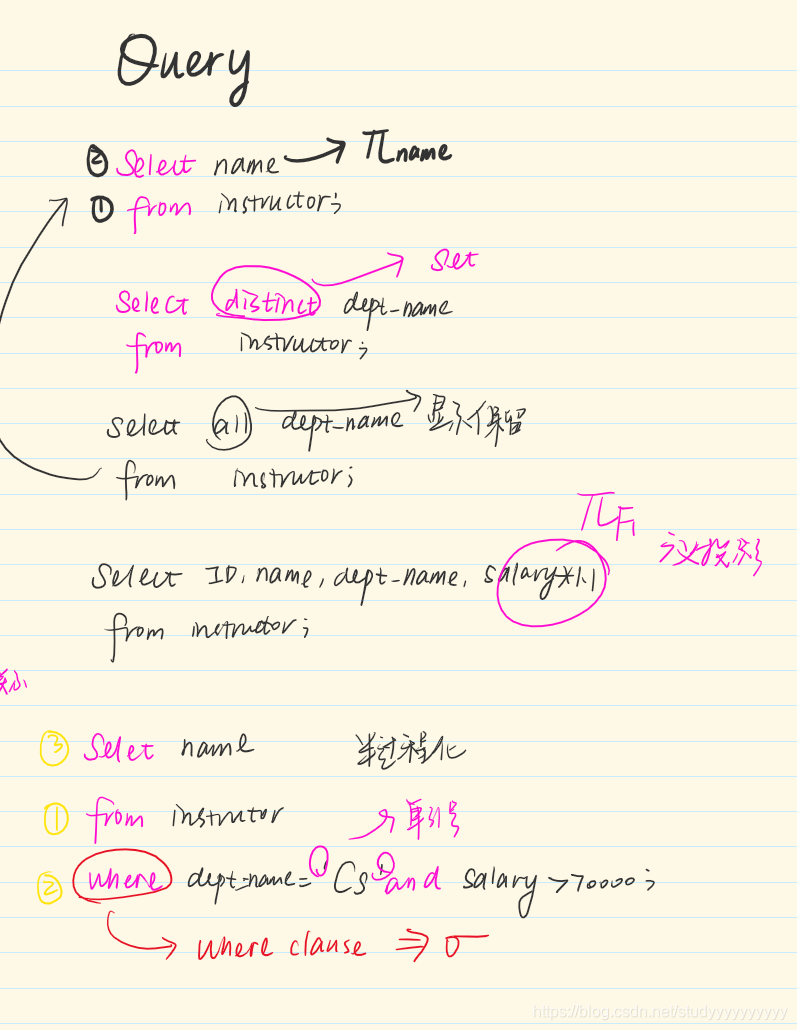 Query
② Select name → π name
① from instructor;
Set
Select distinct dept_name
from instructor;
Select all dept_name 显示保留
from instrutor;
π F1
义投影
Select ID, name, dept_name, salary*1.1
from instructor;
③ Selet name 半过程化
① from instrutor 单引号
② where dept_name = 'Cs' and salary >70000;
where clause ⇒ σ
https://blog.csdn.net/studyyyyyyyyyy